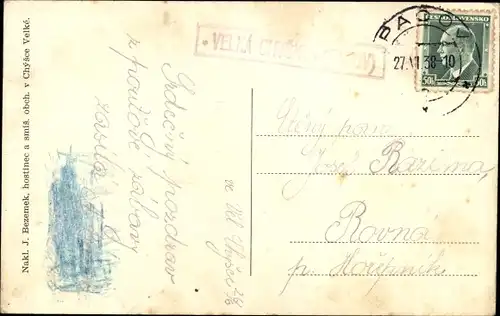 Nakl. J. Bezemek, hostinec a smíš. obch. v Chýšce Velké.
VELKÁ CHYŠ
PACO
27.VI.38-10
ČESKOSLOVENSKO
50h
Srdečný pozdrav
z pouťové zábavy
zasílá
ve Vel. Chyšce 26/6
Ctěný pan
Josef Razima,
Rovna
p. Hořepník